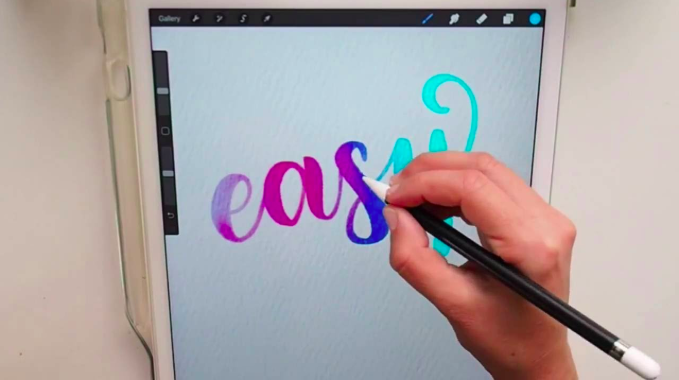 Gallery
easy